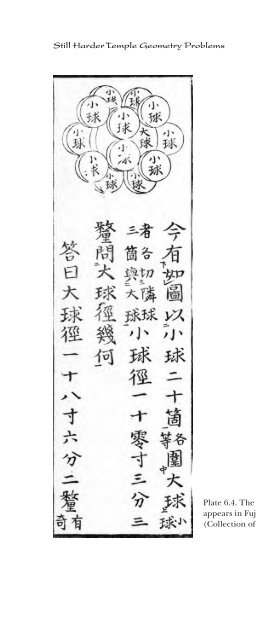 Still Harder Temple Geometry Problems
小球
小球
小球
小球
小球
小球
大球
小球
小球
小球
小球
小球
小球
今有如圖以小球二十箇各等圍大球小球
者各切隣球三箇與大球小球徑一十零寸三分三
釐問大球徑幾何
答曰大球徑一十八寸六分二釐有奇
Plate 6.4. The
appears in Fuj
(Collection of